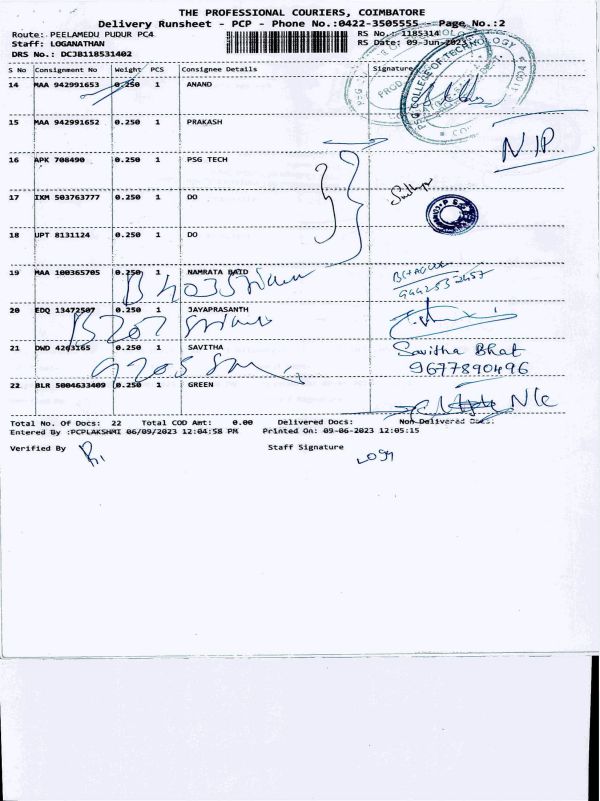 THE PROFESSIONAL COURIERS, COIMBATORE
Delivery Runsheet - PCP - Phone No.:0422-3505555 - Page No.:2
Route: PEELAMEDU PUDUR PC4 RS No. 1185314
Staff: LOGANATHAN RS Date: 09-Jun-2023
DRS No.: DCJB118531402
S No Consignment No Weight PCS Consignee Details Signature
14 MAA 942991653 0.250 1 ANAND
PSG COLLEGE OF TECHNOLOGY
15 MAA 942991652 0.250 1 PRAKASH
NIP
16 APK 708490 0.250 1 PSG TECH
17 IXM 503763777 0.250 1 DO
18 UPT 8131124 0.250 1 DO
19 MAA 100365705 0.250 1 NAMRATA BAID
B 4035
20 EDQ 13472507 0.250 1 JAYAPRASANTH
B 207
21 DWD 4263165 0.250 1 SAVITHA Savitha Bhat
9677890496
G205
22 BLR 5004633409 0.250 1 GREEN
Total No. Of Docs: 22 Total COD Amt: 0.00 Delivered Docs: Non-Delivered Docs:
Entered By :PCPLAKSHMI 06/09/2023 12:04:58 PM Printed On: 09-06-2023 12:05:15
Verified By Staff Signature